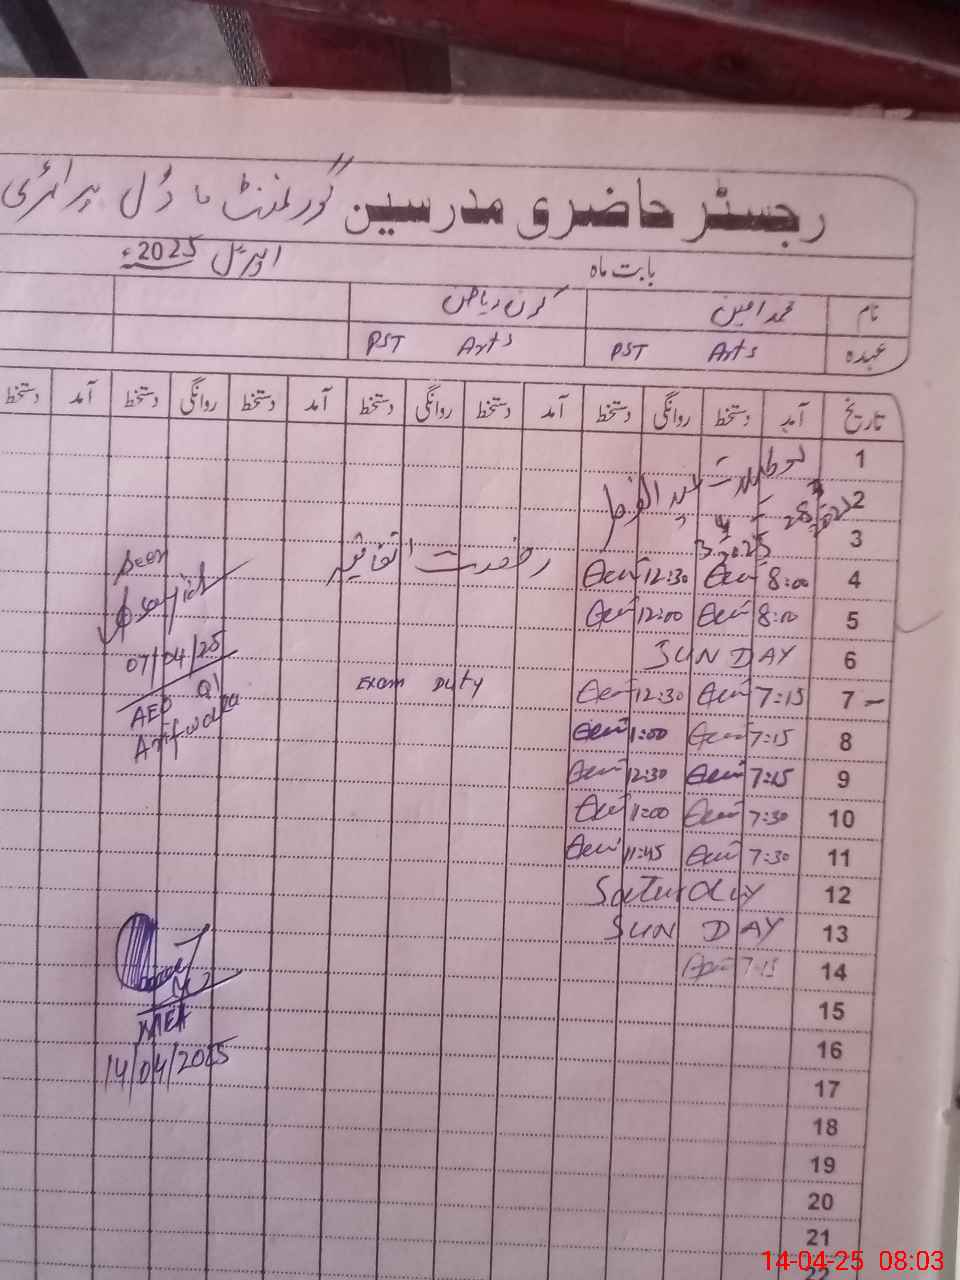 رجسٹر حاضری مدرسین گورنمنٹ ماڈل پرائمری
بابت ماہ اپریل 2025ء
نام محمد امین کرن ریاض
عہدہ PST Arts PST Arts
تاریخ آمد دستخط روانگی دستخط آمد دستخط روانگی دستخط آمد دستخط
1 تعطیلات عید الفطر
2
3
4 8:00 12:30 رخصت اتفاقیہ
5 8:00 12:00
6 SUNDAY
7 7:15 12:30 Exam Duty
8 7:15 1:00
9 7:15 12:30
10 7:30 1:00
11 7:30 11:45
12 Saturday
13 SUNDAY
14 7:15
15
16
17
18
19
20
21
22
Seen
07/04/25
AEO
Arifwala
MEA
14/04/2025
14-04-25 08:03